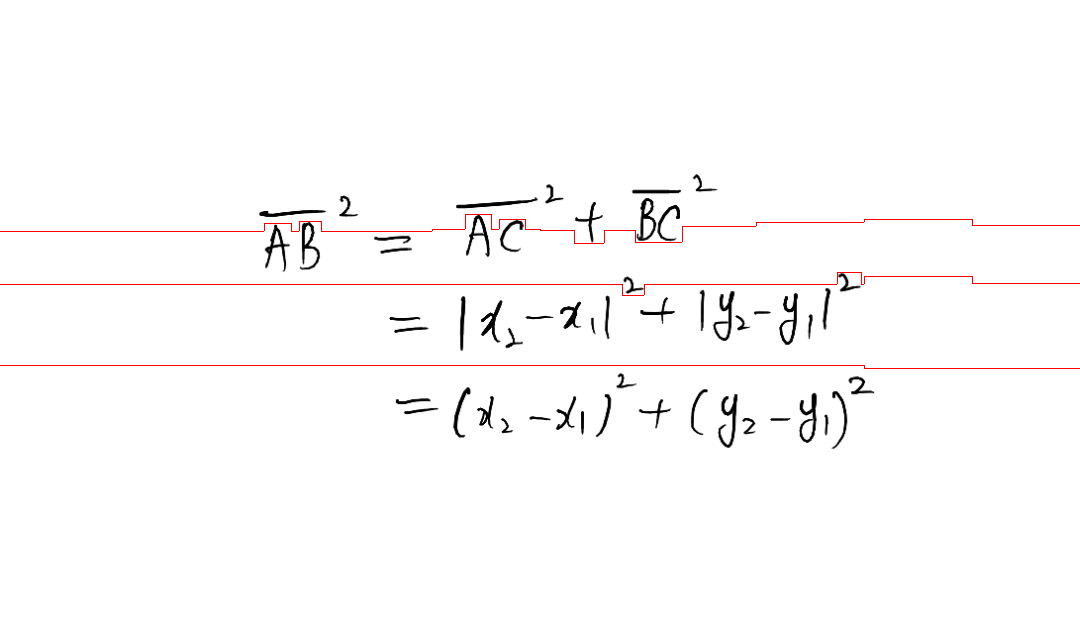 $\overline{AB}^2 = \overline{AC}^2 + \overline{BC}^2$
$= |x_2 - x_1|^2 + |y_2 - y_1|^2$
$= (x_2 - x_1)^2 + (y_2 - y_1)^2$